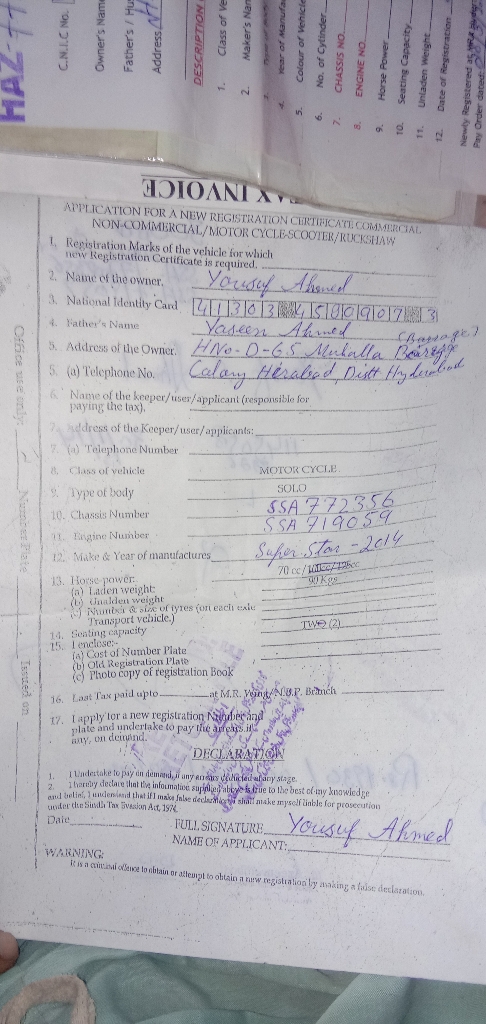 HAZ-
C.N.I.C No.
Owner's Name
Father's / Hu
Address
DESCRIPTION
1. Class of Ve
2. Maker's Nam
4. Year of Manufa
5. Colour of Vehicle
6. No. of Cylinder
7. CHASSIS NO.
8. ENGINE NO.
9. Horse Power
10. Seating Capacity
11. Unladen Weight
12. Date of Registration
Newly Registered
Pay Order dated
INVOICE
APPLICATION FOR A NEW REGISTRATION CERTIFICATE COMMERCIAL
NON-COMMERCIAL/MOTOR CYCLE-SCOOTER/RUCKSHAW
1. Registration Marks of the vehicle for which
new Registration Certificate is required.
2. Name of the owner. Yousuf Ahmed
3. National Identity Card 41303 450907 3
4. Father's Name Yaseen Ahmed
5. Address of the Owner. H No- D-65 Muhalla
5. (a) Telephone No. Colony Herabad Distt Hyderabad
6. Name of the keeper/user/applicant (responsible for
paying the tax).
7. address of the Keeper/user/applicants:
7. (a) Telephone Number
8. Class of vehicle MOTOR CYCLE
9. Type of body SOLO
10. Chassis Number SSA 772356
11. Engine Number SSA 719059
12. Make & Year of manufactures Super Star - 2014
13. Horse power: 70 cc /
(a) Laden weight: 90 Kgs
(b) Unalden weight
(c) Number & size of tyres (on each exle
Transport vehicle.)
14. Seating capacity TWO (2)
15. I enclose:-
(a) Cost of Number Plate
(b) Old Registration Plate
(c) Photo copy of registration Book
16. Last Tax paid upto at M.R. Branch
17. I apply for a new registration Number and
plate and undertake to pay the arrears if
any, on demand.
DECLARATION
1. I Undertake to pay on demand, if any errors deducted at any stage.
2. I hereby declare that the information supplied above is true to the best of my knowledge
and belief, I understand that if I make false declaration I shall make myself liable for prosecution
under the Sindh Tax Evasion Act, 1974.
Date
FULL SIGNATURE Yousuf Ahmed
NAME OF APPLICANT:
WARNING:
It is a criminal offence to obtain or attempt to obtain a new registration by making a false declaration.
Office use only:
Number Plate
Issued on